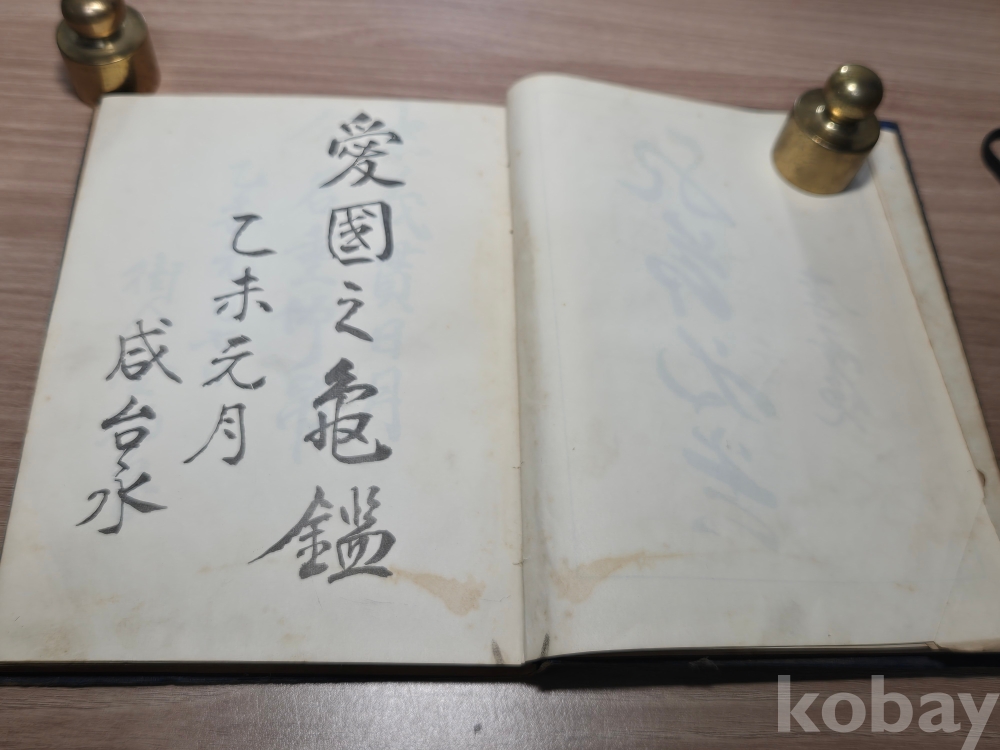 愛國之龜鑑
乙未元月
咸台永
kobay